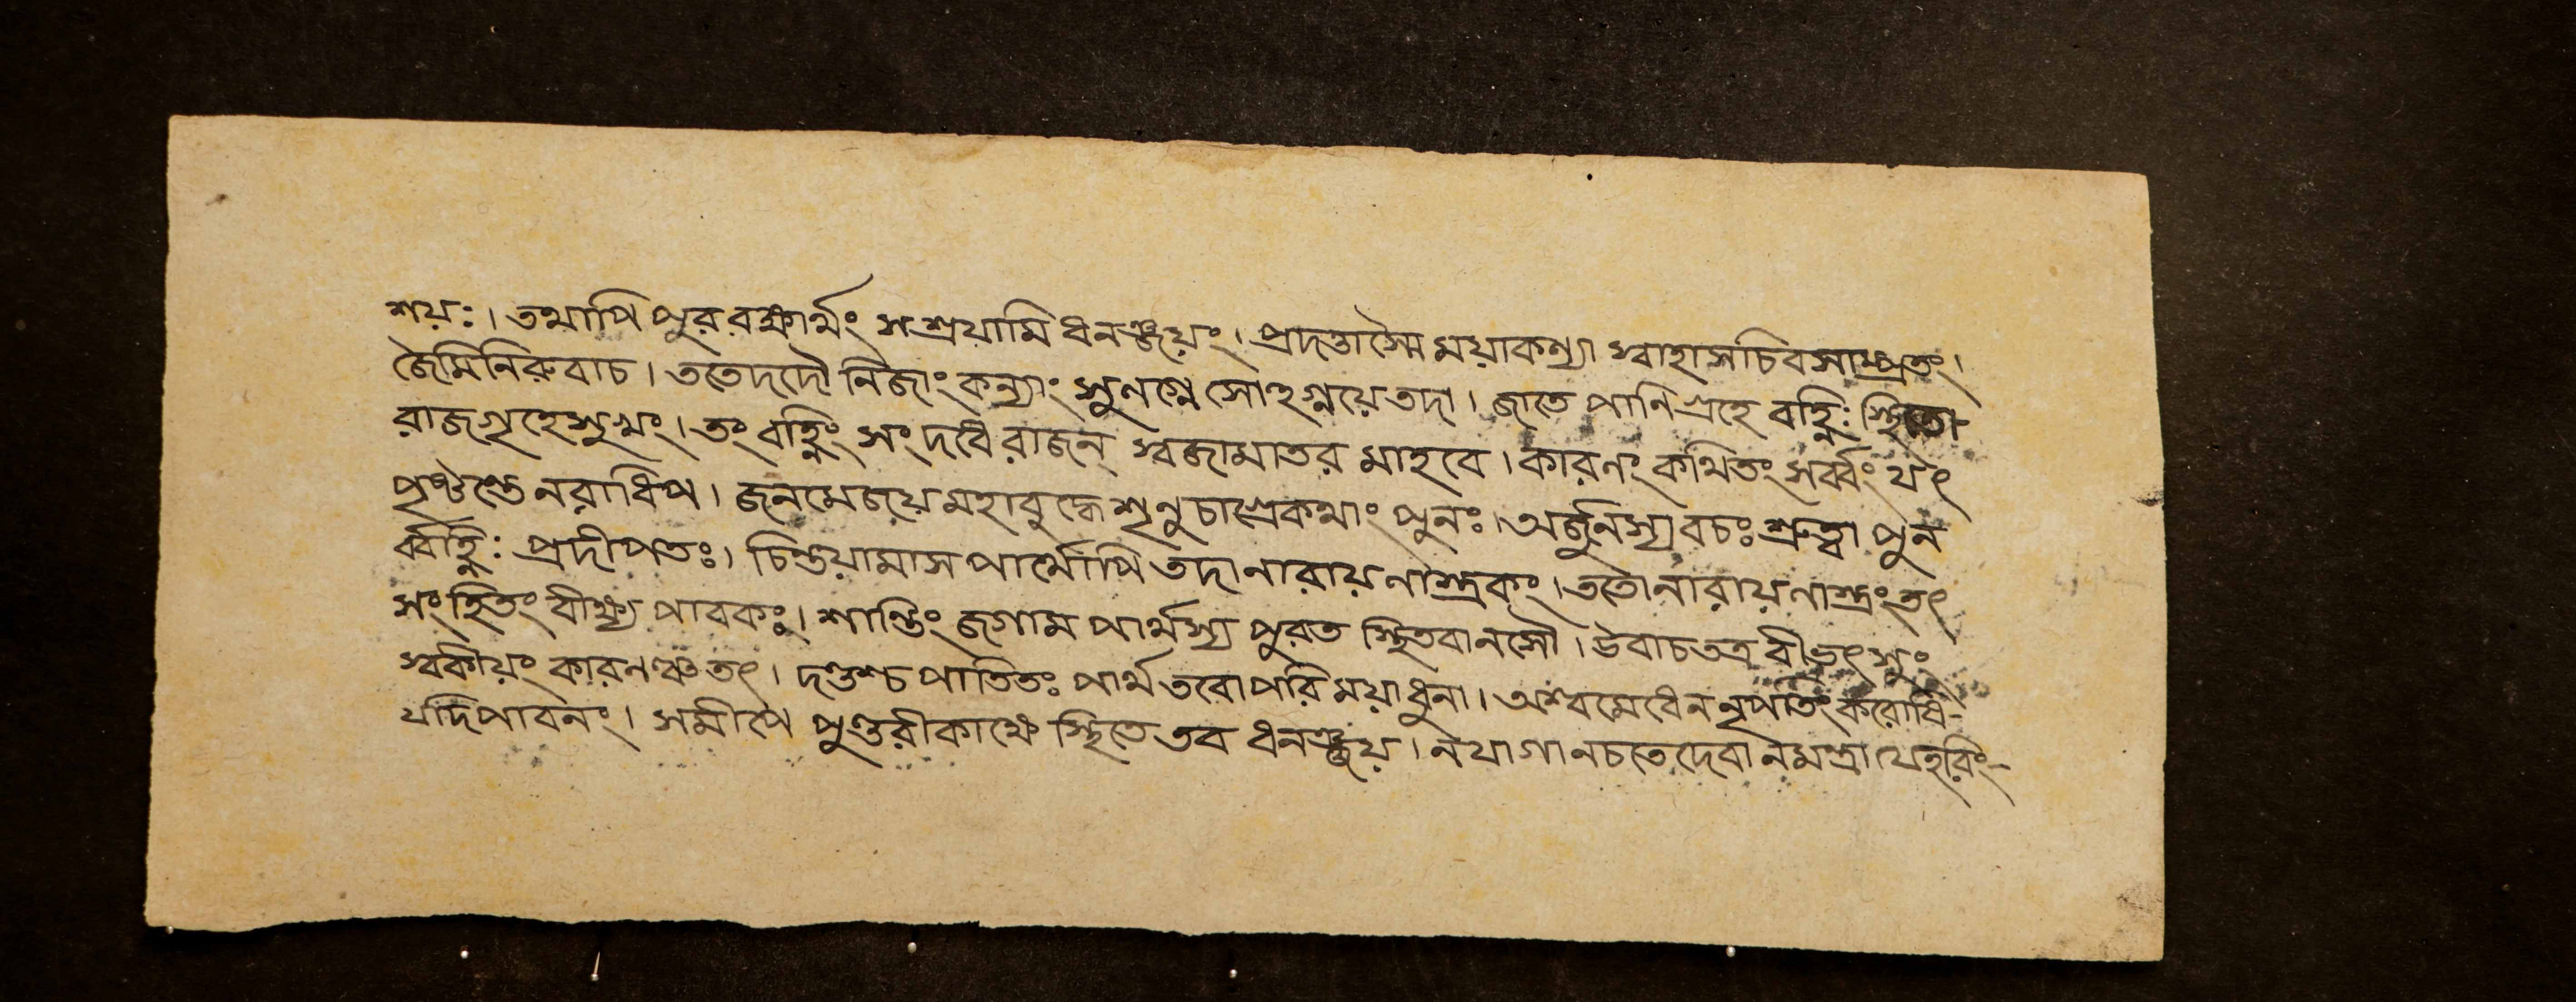 শয়ঃ। তথাপি পুর রক্ষার্থং সংশ্রয়ামি ধনঞ্জয়ং। প্রদত্তাস্মৈ ময়াকন্যা স্বাহাসচিবসাম্প্রতং।
জৈমিনিরুবাচ। ততেদদৌ নিজাং কন্যাং সুনগ্নে সোহগ্নয়ে তদা। জাতে পানিগ্রহে বহ্নিঃ স্থিতো
রাজগৃহেসুখং। তং বহ্নিং সংদধৈরাজন্ স্বজামাতর মাহবে। কারনং কথিতং সর্ব্বং যৎ
পৃষ্টন্তে নরাধিপ। জনমেজয়মহাবুদ্ধে শৃনু চাগ্রেকথাং পুনঃ। অর্জুনস্য বচঃ শ্রুত্বা পুন
র্ব্বহ্নিঃ প্রদীপতঃ। চিন্তয়ামাস পার্থোপি তদা নারায়নাস্ত্রকং। ততোনারায়নাস্ত্রং তৎ
সংহিতং বীক্ষ্য পাবকঃ। শান্তিং জগাম পার্থস্য পুরত স্থিতবানসৌ। উবাচ তত্র বীভৎসুং
স্বকীয়ং কারনঞ্চ তৎ। দণ্ডশ্চ পাতিতঃ পার্থ তবোপরি ময়াধুনা। অশ্বমেধেন নৃপতিং করোষি
যদি পাবনং। সমীপে পুণ্ডরীকাক্ষে স্থিতে তব ধনঞ্জয়। নযাগা নচতে দেবা নমন্ত্রা যেহরিং